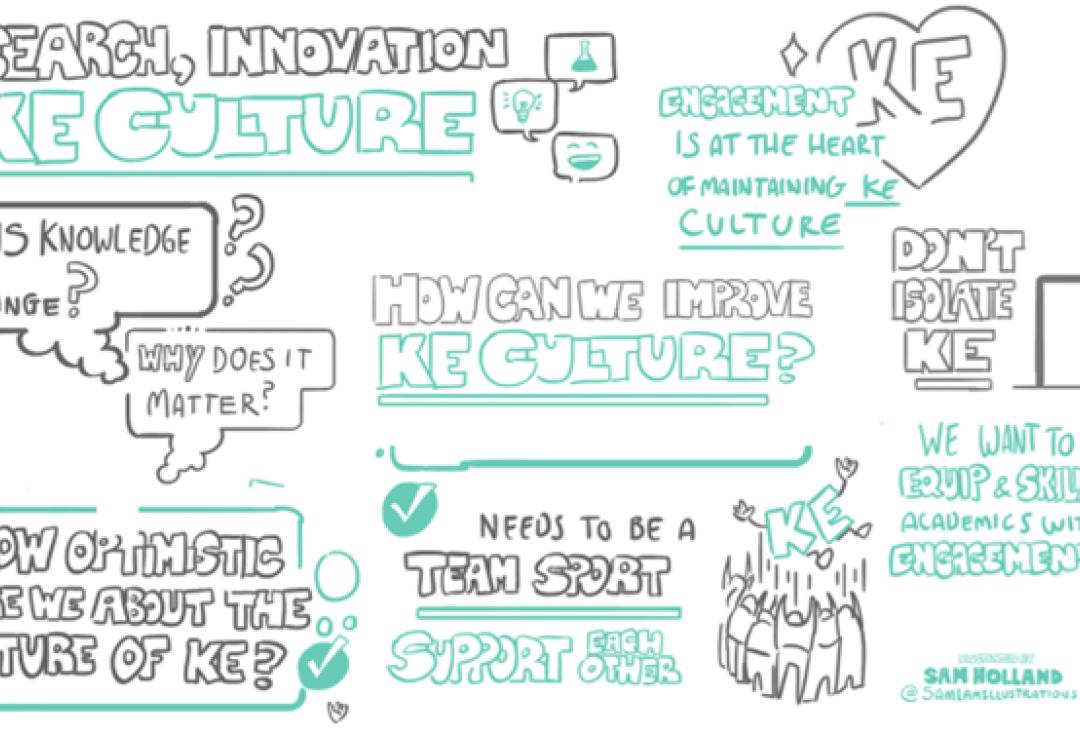 SEARCH, INNOVATION
KE CULTURE
KE
ENGAGEMENT
IS AT THE HEART
OF MAINTAINING KE
CULTURE
IS KNOWLEDGE
NGE?
WHY DOES IT
MATTER?
HOW CAN WE IMPROVE
KE CULTURE?
DON'T
ISOLATE
KE
WE WANT TO
EQUIP & SKILL
ACADEMICS WIT
ENGAGEMENT
OW OPTIMISTIC
RE WE ABOUT THE
TURE OF KE?
NEEDS TO BE A
TEAM SPORT
SUPPORT EACH
OTHER
KE
SAM HOLLAND
@SAMIAMILLUSTRATIONS